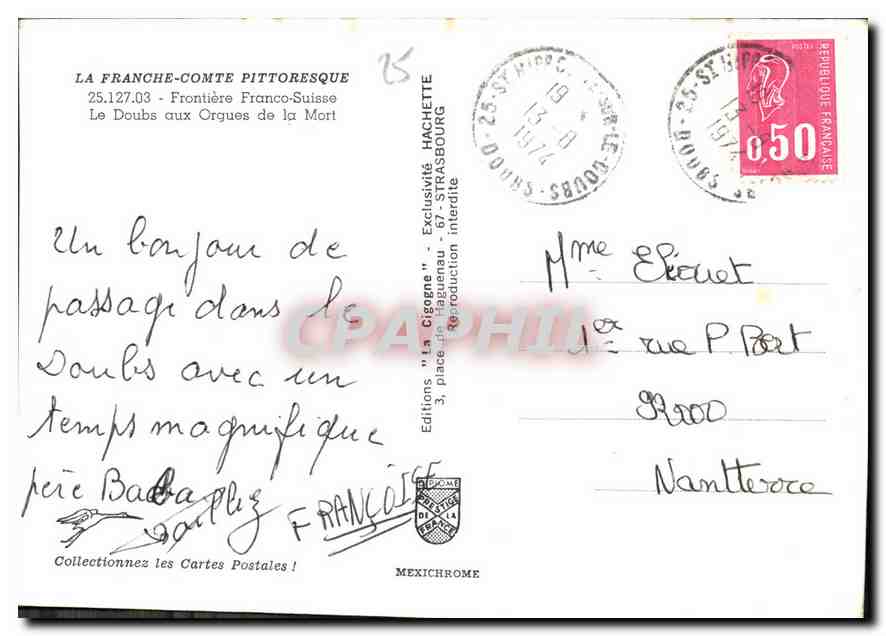 LA FRANCHE-COMTE PITTORESQUE
25.127.03 - Frontière Franco-Suisse
Le Doubs aux Orgues de la Mort
25
Un bonjour de
passage dans le
Doubs avec un
temps magnifique
père Baba
FRANÇOISE
Collectionnez les Cartes Postales !
Editions "La Cigogne" - Exclusivité HACHETTE
3, place de Haguenau - 67 - STRASBOURG
Reproduction interdite
DIPLOME
PRESTIGE
DE LA
FRANCE
MEXICHROME
25-ST HIPPOLYTE-SUR-LE-DOUBS - DOUBS
19
13-8
1974
25-ST HIPP
13-8
1974
DOUBS
POSTES
REPUBLIQUE FRANÇAISE
0,50
Mme
1er rue P. Bert
92000
Nantterre
CPAPHIL